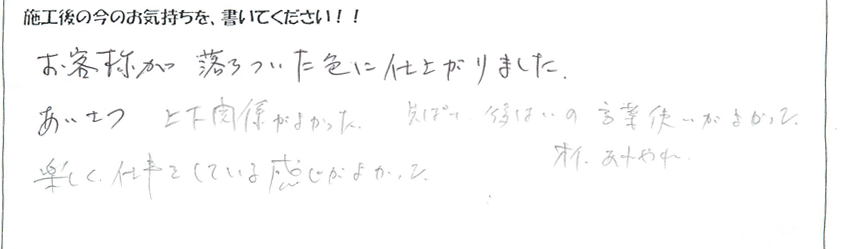 施工後の今のお気持ちを、書いてください！！
お客様が 落ちついた色に仕上がりました.
あいさつ 上下関係がよかった. 先ぱい 後はいの言葉使いがよかった.
オイ. あれやれ.
楽しく. 仕事をしている感じがよかった.